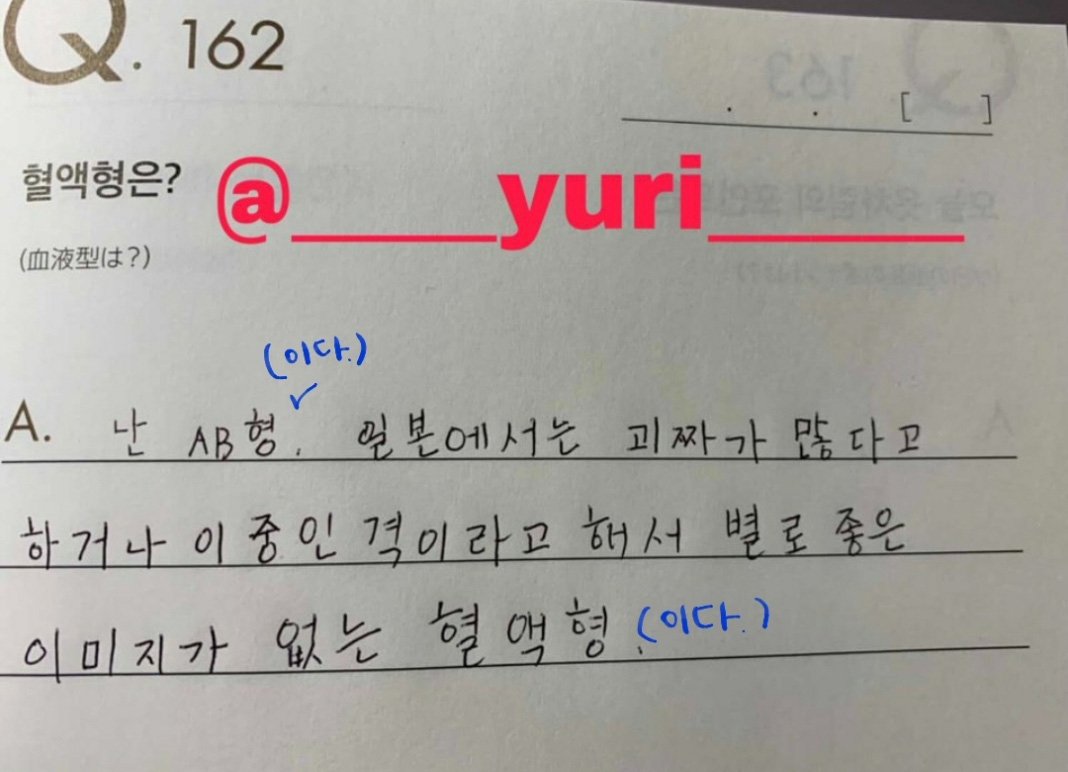 Q. 162
. . [ ]
혈액형은?
@____yuri_____
(血液型は?)
(이다.)
✓
A. 난 AB형. 일본에서는 괴짜가 많다고
하거나 이중인격이라고 해서 별로 좋은
이미지가 없는 혈액형. (이다.)